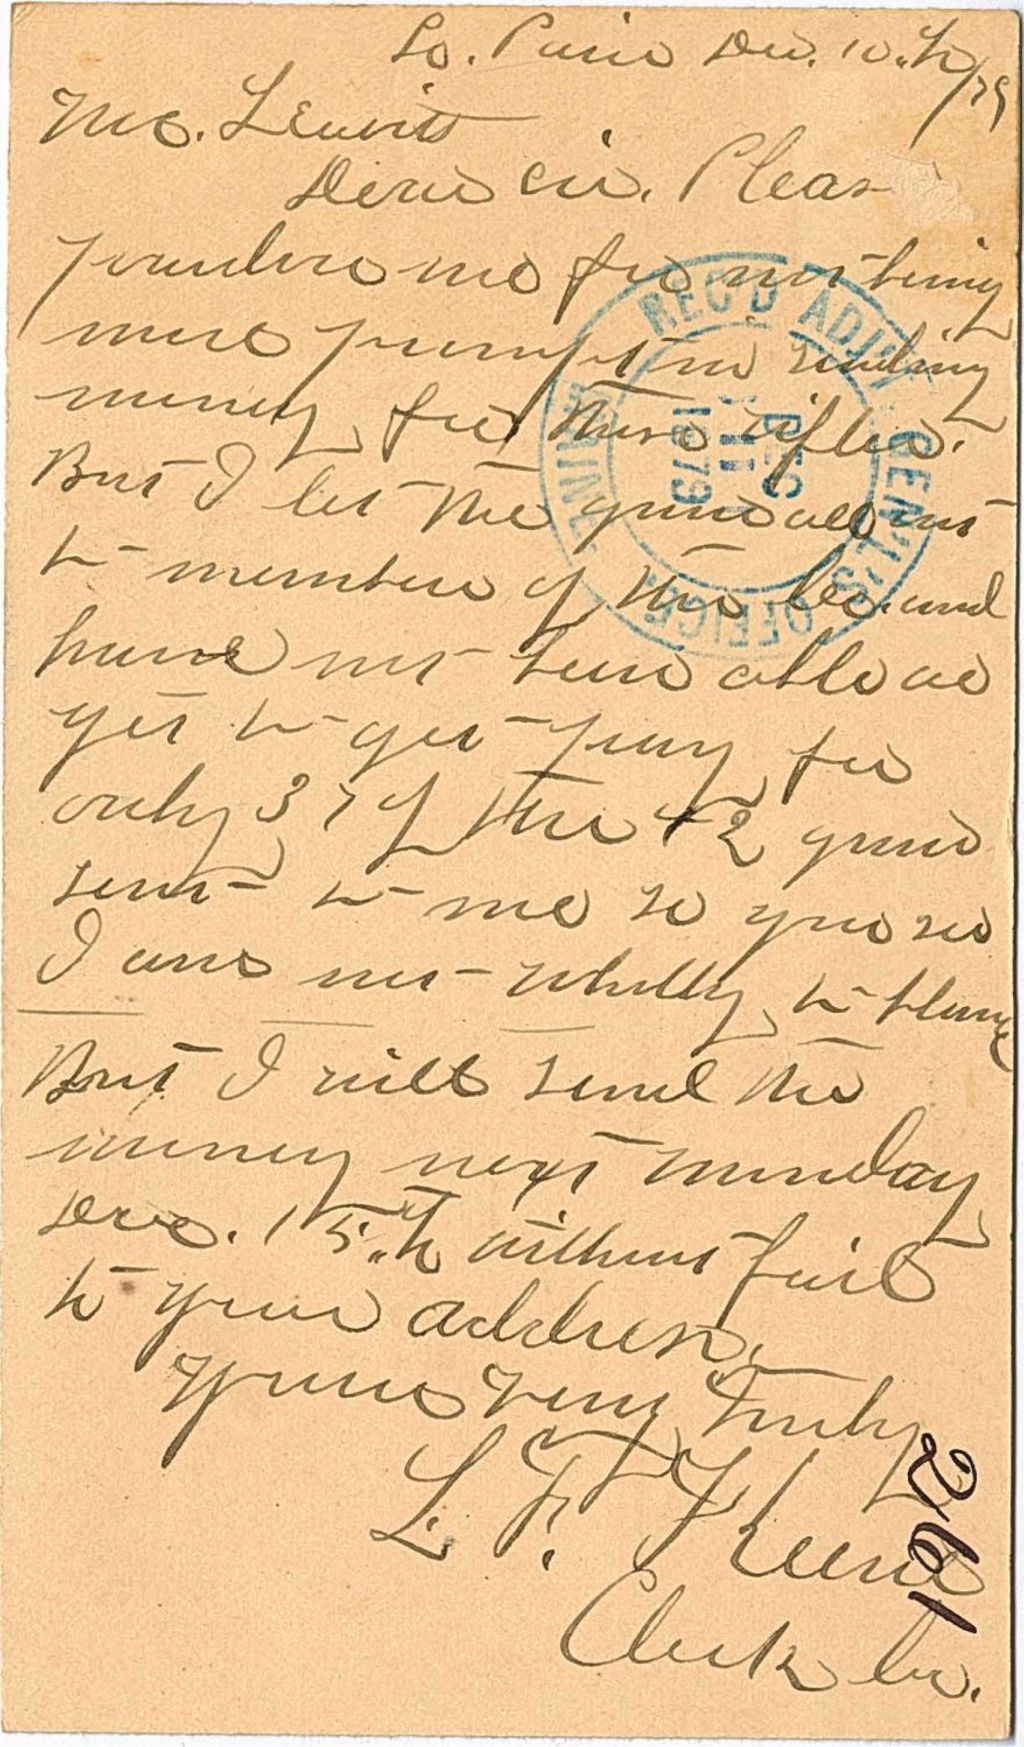 So. Paris Dec. 10.th/79
Mr. Leavitt
Dear Sir. Pleas
pardon me for not being
more prompt in sending
money for those rifles.
But I let the guns all out
to members of the Co. and
have not been able as
yet to get pay for
only 37 of the 42 guns
sent to me so you see
I am not wholly to blame
But I will send the
money next monday
Dec. 15.th without fail
to your address.
Yours very Truly
L. F.
Clerk Co.
2161
REC'D ADJ'T GEN'L'S OFFICE MAINE
DEC 11 1879